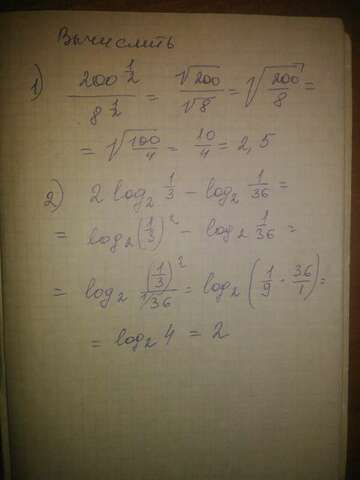 Вычислить
1) 200^{1/2} / 8^{1/2} = √200 / √8 = √(200/8) =
= √(100/4) = 10/4 = 2,5
2) 2 log₂ 1/3 - log₂ 1/36 =
= log₂ (1/3)² - log₂ 1/36 =
= log₂ (1/3)² / 1/36 = log₂ (1/9 · 36/1) =
= log₂ 4 = 2